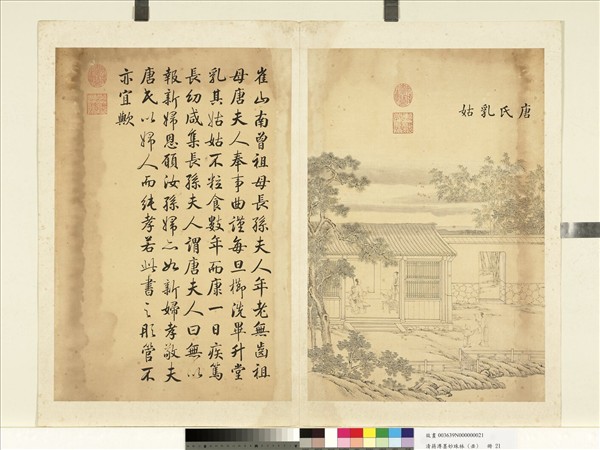 唐氏乳姑
崔山南曾祖母長孫夫人年老無齒祖
母唐夫人奉事曲謹每旦櫛洗畢升堂
乳其姑姑不粒食數年而康一日疾篤
長幼咸集長孫夫人謂唐夫人曰無以
報新婦恩願汝孫婦亦如新婦孝敬夫
唐氏以婦人而純孝若此書之彤管不
亦宜歟
故畫 003639N000000021
清蔣溥墨妙珠林（亥） 冊 21